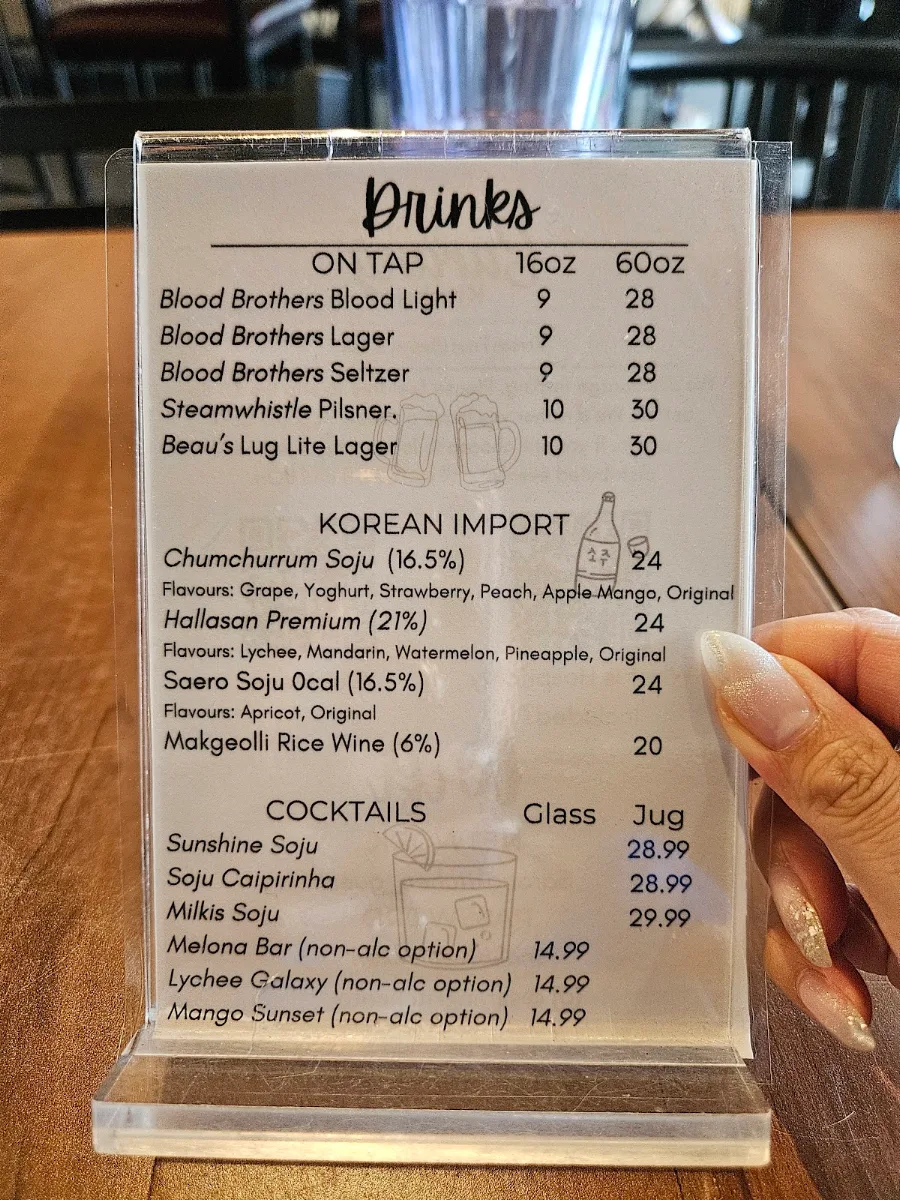 Drinks
ON TAP 16oz 60oz
Blood Brothers Blood Light 9 28
Blood Brothers Lager 9 28
Blood Brothers Seltzer 9 28
Steamwhistle Pilsner. 10 30
Beau's Lug Lite Lager 10 30
KOREAN IMPORT
Chumchurrum Soju (16.5%) 24
Flavours: Grape, Yoghurt, Strawberry, Peach, Apple Mango, Original
Hallasan Premium (21%) 24
Flavours: Lychee, Mandarin, Watermelon, Pineapple, Original
Saero Soju 0cal (16.5%) 24
Flavours: Apricot, Original
Makgeolli Rice Wine (6%) 20
COCKTAILS Glass Jug
Sunshine Soju 28.99
Soju Caipirinha 28.99
Milkis Soju 29.99
Melona Bar (non-alc option) 14.99
Lychee Galaxy (non-alc option) 14.99
Mango Sunset (non-alc option) 14.99